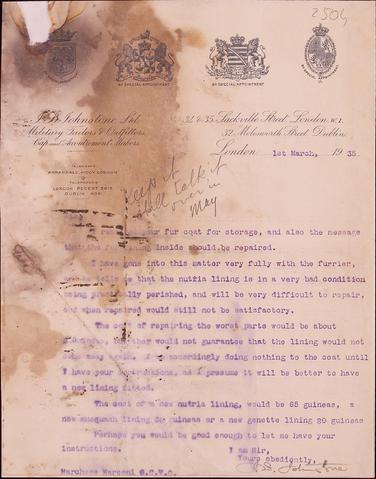 2504
BY SPECIAL APPOINTMENT BY SPECIAL APPOINTMENT BY SPECIAL APPOINTMENT
Johnstone, Ltd.
Military Tailors & Outfitters,
Cap and Accoutrement Makers.
Sackville Street, London, W.1.
32, Molesworth Street, Dublin.
London 1st March, 1935.
TELEGRAMS
LONDON REGENT
DUBLIN
keep it
shall talk it
over in
May
our fur coat for storage, and also the message
that the inside should be repaired.
I have gone into this matter very fully with the furrier,
tells that the nutria lining is in a very bad condition
being practically perished, and will be very difficult to repair,
and when repaired would still not be satisfactory.
The cost of repairing the worst parts would be about
but they would not guarantee that the lining would not
away again. I am accordingly doing nothing to the coat until
I have your instructions, as I presume it will be better to have
a new lining fitted.
The cost of a new nutria lining, would be 65 guineas, a
new musquash lining guineas or a new genette lining 20 guineas
Perhaps you would be good enough to let me have your
instructions. I am Sir,
Yours obediently,
Johnstone
Marchese Marconi G.C.V.O.